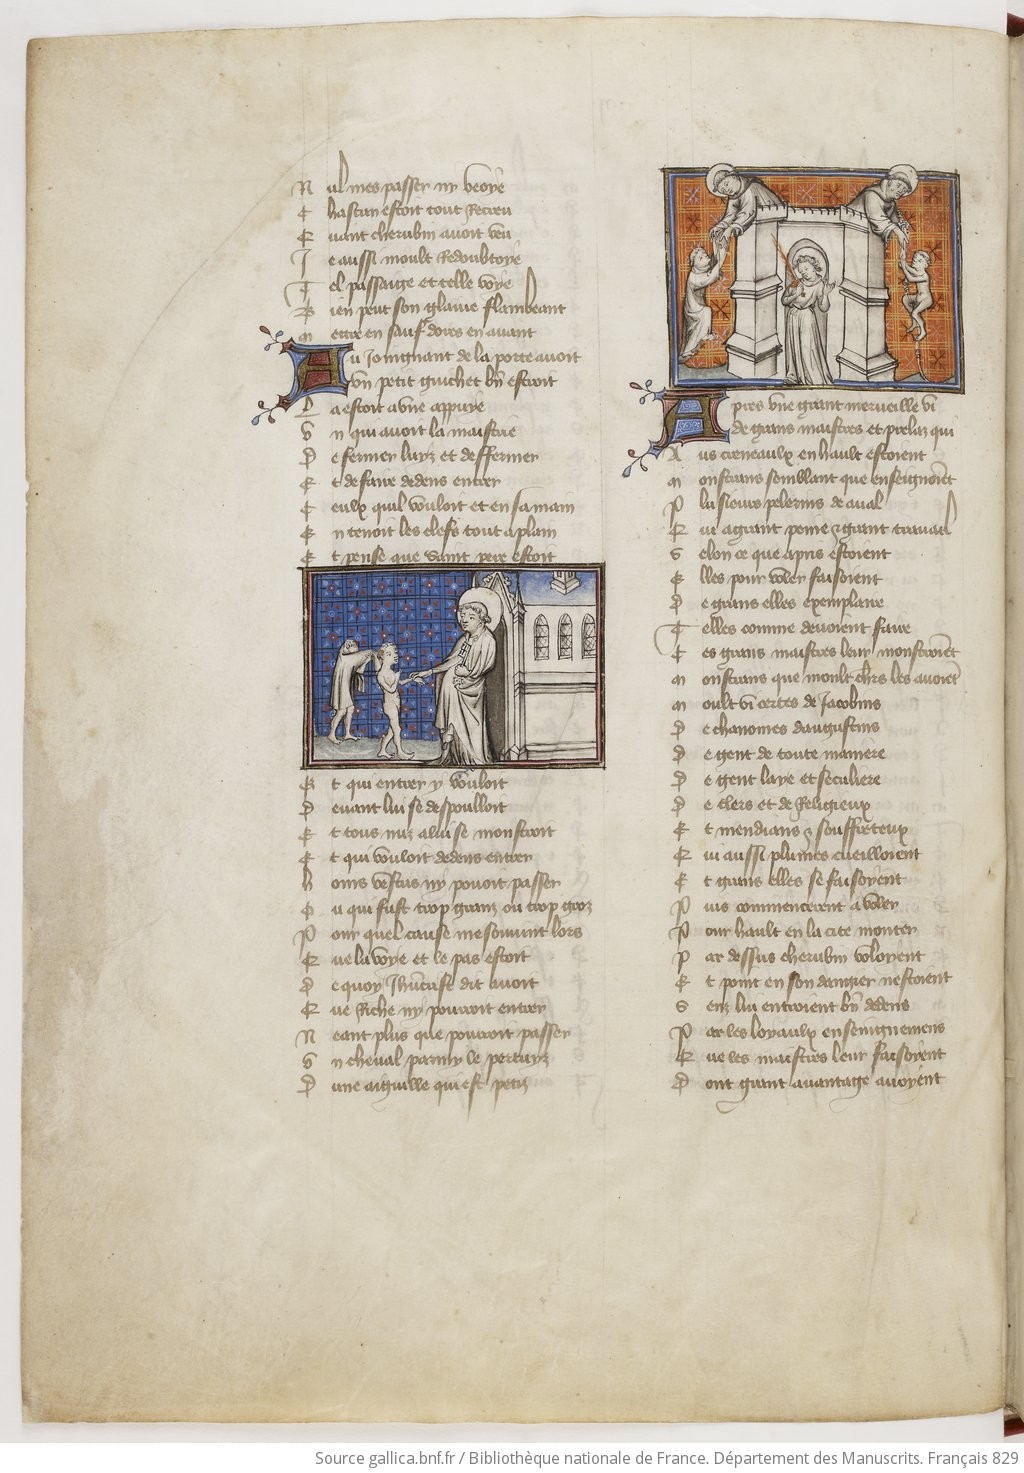 N ul mes passer ny veoye
C hascun estoit tout Recreu
Q uant cherubin auoit veu
J e aussi moult Redoubtoye
T el passaige et telle voye
B ien peut son glaiue flambeant
M ettre en sauf dores en auant
Au Joingnant de la porte auoit
vn petit guichet bñ estroit
L a estoit a vne appuye
V n qui auoit la maistrie
D e fermer luyz et deffermer
E t de faire dedens entrer
C eulx quil vouloit et en sa main
E n tenoit les clefs tout a plain
E t pense que saint pere estoit
E t qui entrer y vouloit
D euant lui se despoulloit
E t tous nuz a lui se monstroit
E t qui vouloit dedens entrer
H oms vestus ny pouoit passer
O u qui fust trop grant ou trop groz
P our quel cause me souuint lors
Q ue la voye et le pas estoit
D e quoy Jhucrist dit auoit
Q ue Riche ny pourroit entrer
N eant plus que pourroit passer
V n cheual parmy le pertuyz
D une aiguille qui est petiz
Apres vne grant merueille vi
de grans maistres et prelaz qui
A us creneaulx en hault estoient
M onstrans semblant que enseignoiẽt
P lusieurs pelerins de aual
Q ui a grant peine & grant trauail
S elon ce que apris estoient
E lles pour voler faisoient
D e grans elles exemplaire
T elles comme deuoient faire
C es grans maistres leur monstroiẽt
M onstrans que moult chrs les auoiẽt
M oult vi certes de Jacobins
D e chanoines daugustins
D e gent de toute maniere
D e gent laye et seculiere
D e clers et de Religieux
E t mendians & souffreteux
Q ui aussi plumes cueilloient
E t grans elles se faisoyent
P uis commencerent a voler
P our hault en la cite monter
P ar dessus cherubin voloyent
E t point en son dangier nestoient
S enz lui entroient bñ dedens
P ar les loyaulx enseingnemens
Q ue les maistres leur faisoyent
D ont grant auantage auoyent
Source gallica.bnf.fr / Bibliothèque nationale de France. Département des Manuscrits. Français 829